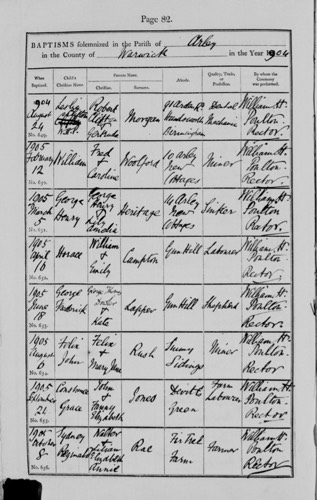 Page 82.
BAPTISMS solemnized in the Parish of Arley
in the County of Warwick in the Year 1904
When Baptized.
Child's Christian Name.
Parents' Name.
Christian.
Surname.
Abode.
Quality, Trade, or Profession.
By whom the Ceremony was performed.
1904
August
24
Lesley
Robert
&
Gertrude
Morgan
Birmingham
Mechanic
William H.
Poulton
Rector
1905
February
12
William
Fred
&
Caroline
Woolford
10 Arley
New
Cottages
Miner
William H.
Poulton
Rector.
1905
March
5
George
Henry
George
Henry
&
Amelia
Heritage
Arley
New
Cottages
Sinker
William H.
Poulton
Rector.
1905
April
16
Horace
William
&
Emily
Campton
Gun Hill
Labourer
William H.
Poulton
Rector.
1905
June
18
George
Frederick
George Thomas
&
Kate
Lapper
Gun Hill
Shepherd
William H.
Poulton
Rector.
1905
August
6
Felix
John
Felix
&
Mary Ann
Rush
Sidings
Miner
William H.
Poulton
Rector.
1905
24
Constance
Grace
John
&
Fanny
Elizabeth
Jones
Green
Farm
Labourer
William H.
Poulton
Rector
1905
8
No. 656.
Sydney
Reginald
Walter
Elizabeth
Annie
Rae
Fir Tree
Farm
Farmer
William H.
Poulton
Rector